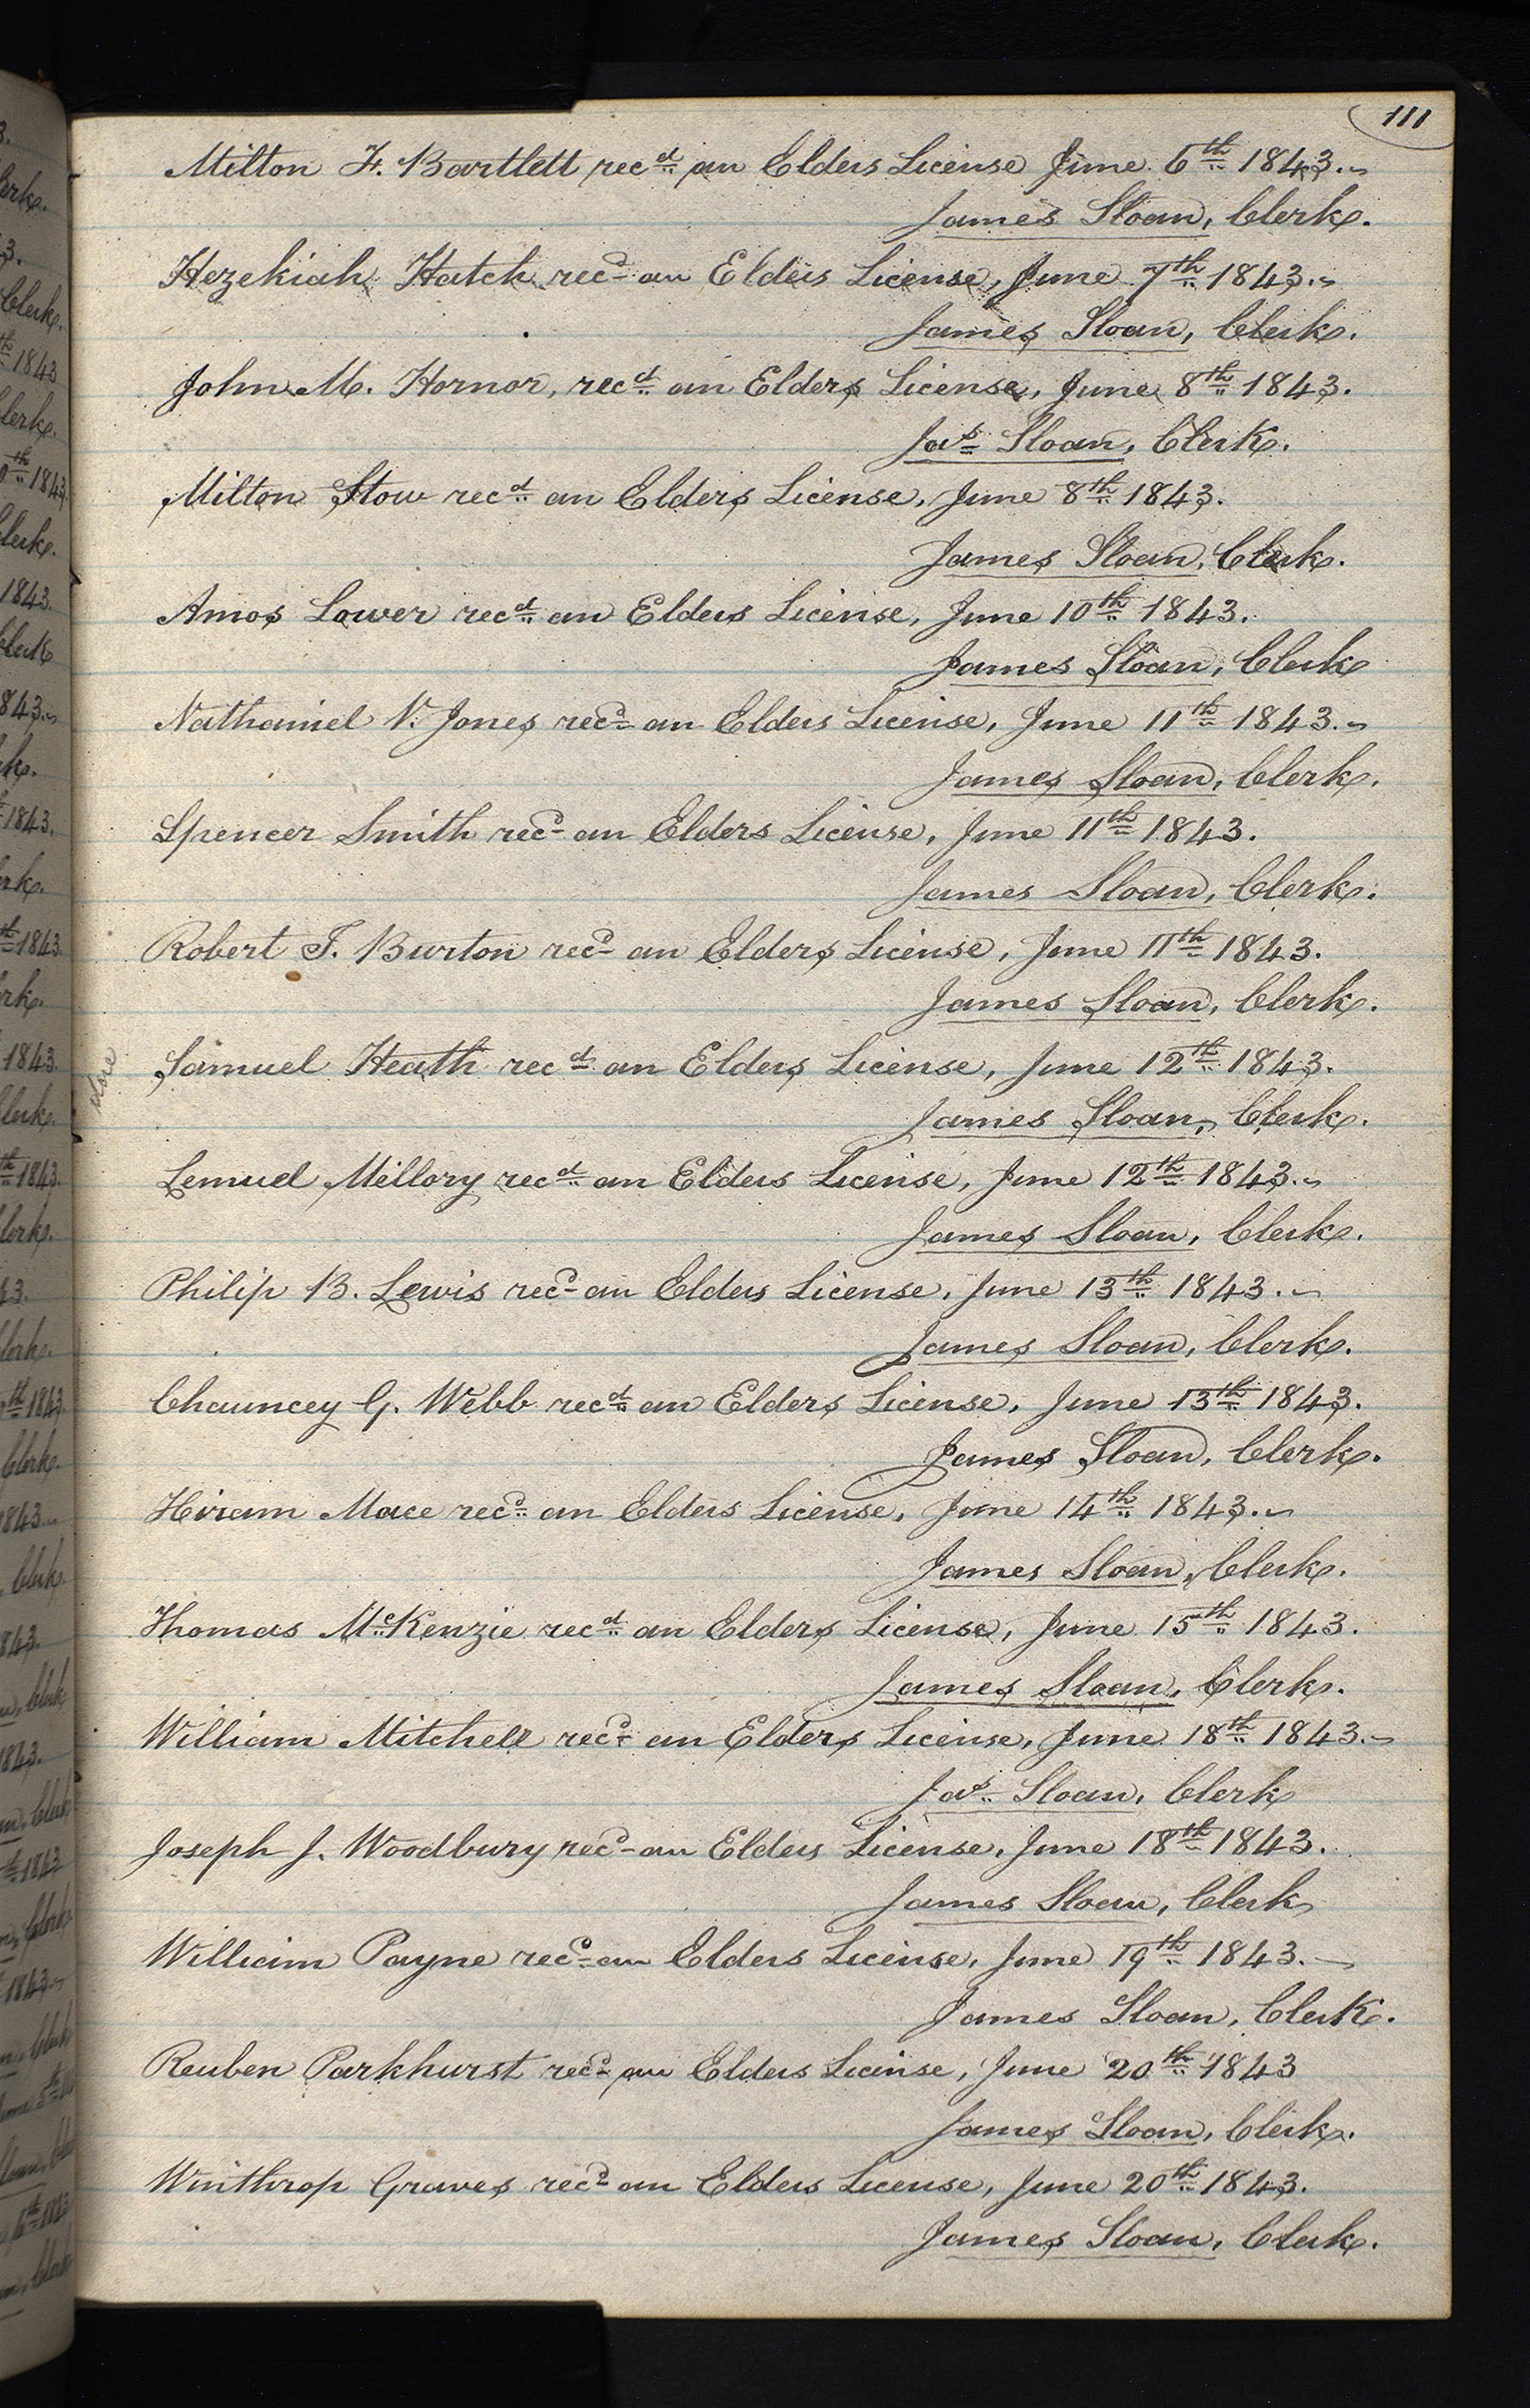 111
Milton F. Bartlett recd an Elders License June 6th 1843.
James Sloan, Clerk.
Hezekiah Hatch recd an Elders License, June 7th 1843.
James Sloan, Clerk.
John M. Hornor, recd an Elders License, June 8th 1843.
Jas Sloan, Clerk.
Milton Stow recd an Elders License, June 8th 1843.
James Sloan, Clerk.
Amos Lower recd an Elders License, June 10th 1843.
James Sloan, Clerk
Nathaniel V. Jones recd an Elders License, June 11th 1843.
James Sloan, Clerk.
Spencer Smith recd an Elders License, June 11th 1843.
James Sloan, Clerk.
Robert T. Burton recd an Elders License, June 11th 1843.
James Sloan, Clerk.
Samuel Heath recd an Elders License, June 12th 1843.
James Sloan, Clerk.
Lemuel Mellory recd an Elders License, June 12th 1843.
James Sloan, Clerk.
Philip B. Lewis recd an Elders License, June 13th 1843.
James Sloan, Clerk.
Chauncey G. Webb recd an Elders License, June 13th 1843.
James Sloan, Clerk.
Hiram Mace recd an Elders License, June 14th 1843.
James Sloan, Clerk.
Thomas McKenzie recd an Elders License, June 15th 1843.
James Sloan, Clerk.
William Mitchell recd an Elders License, June 18th 1843.
Jas. Sloan, Clerk
Joseph J. Woodbury recd an Elders License, June 18th 1843.
James Sloan, Clerk
William Payne recd an Elders License, June 19th 1843.
James Sloan, Clerk.
Reuben Parkhurst recd an Elders License, June 20th 1843
James Sloan, Clerk.
Winthrop Graves recd an Elders License, June 20th 1843.
James Sloan, Clerk.